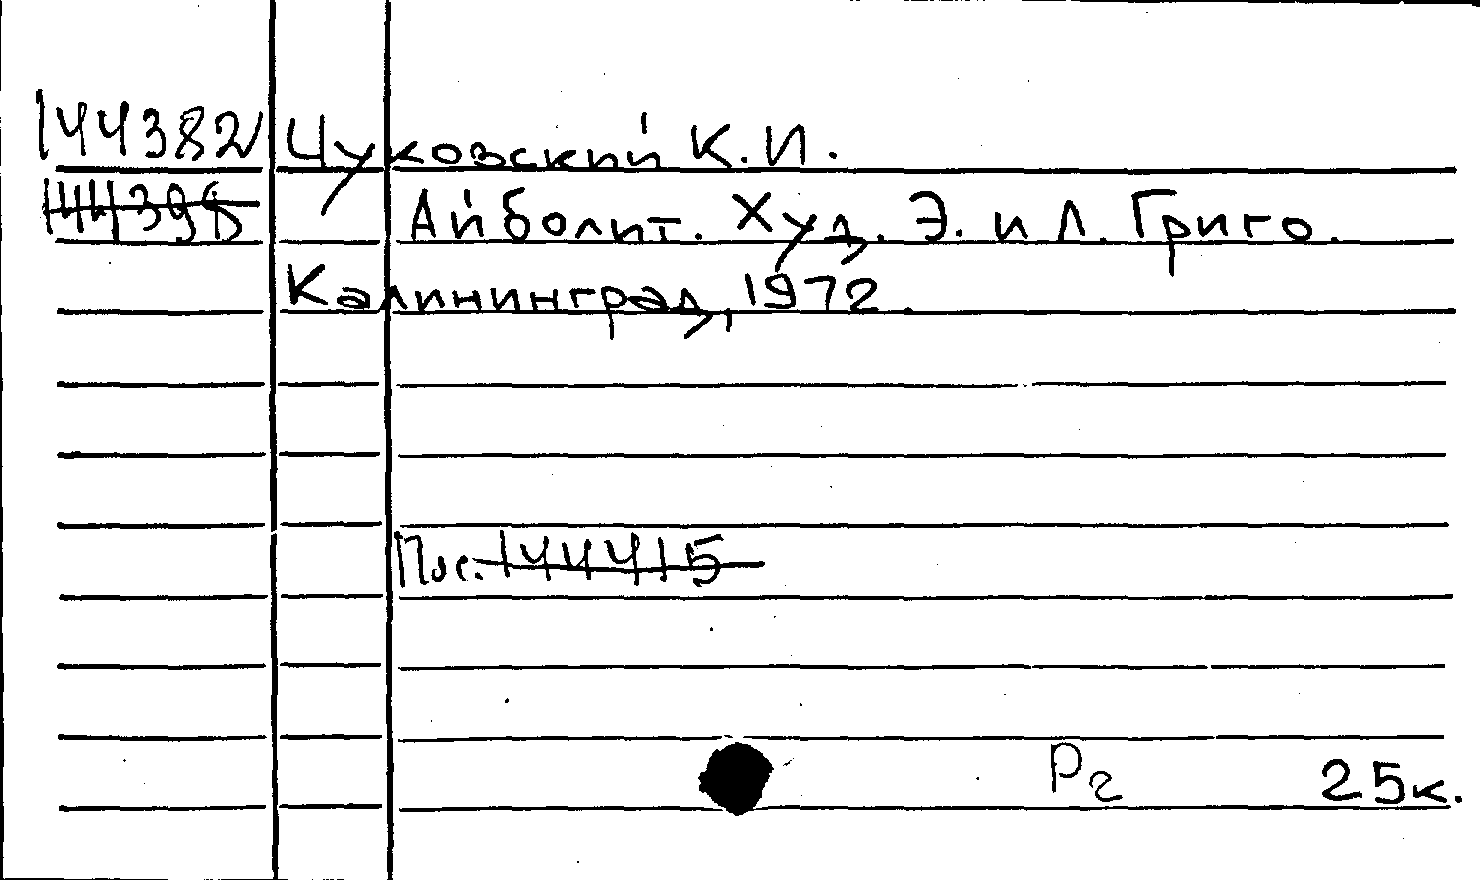 144382 Чуковский К.И.
144398 Айболит. Худ. Э. и Л. Григо.
Калининград, 1972.
Пос. 144415
Рг 25к.